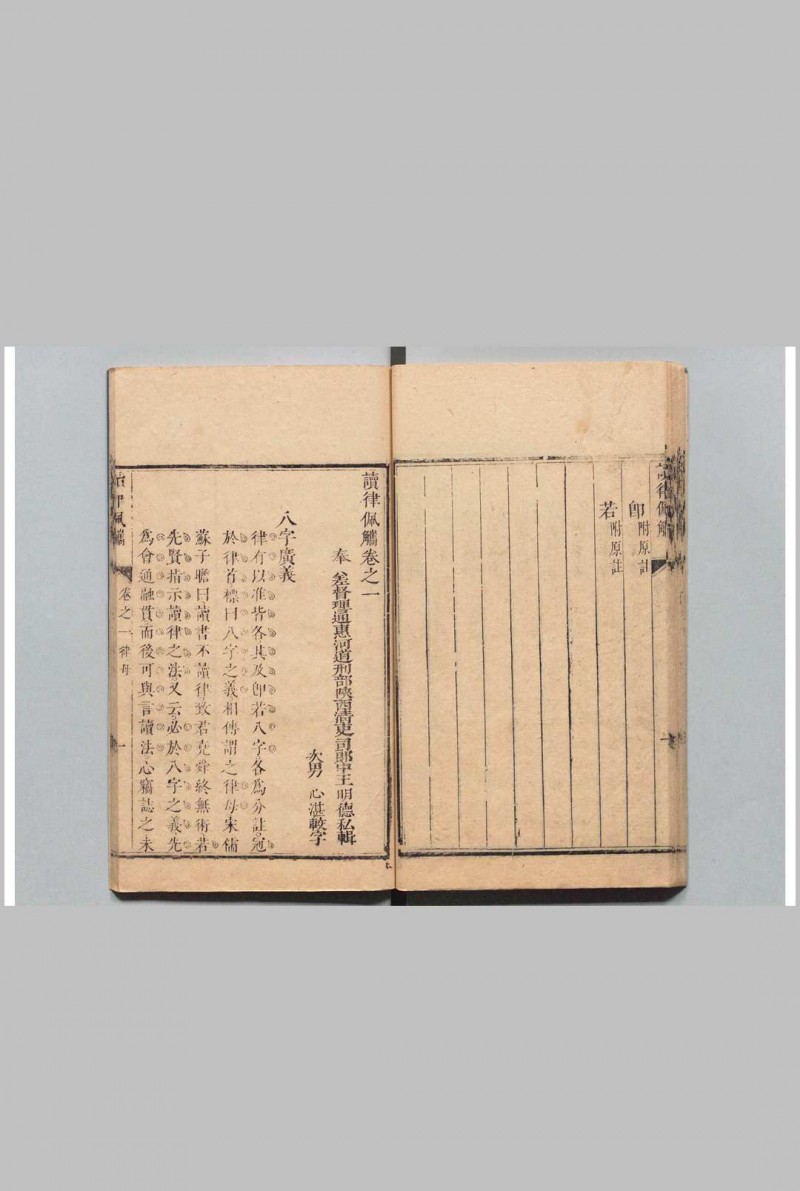 讀律佩觿
即附原註
若附原註
讀律佩觿卷之一
奉　差督理通惠河道刑部陝西清吏司郎中王明德私輯
次男　心湛較字
八字廣義
律有以准皆各其及卽若八字各爲分註冠
於律首標曰八字之義相傳謂之律母宋儒
蘇子瞻曰讀書不讀律致君堯舜終無術若
先賢指示讀律之法又云必於八字之義先
爲會通融貫而後可與言讀法心竊誌之未
佩觿
卷之一律母
一